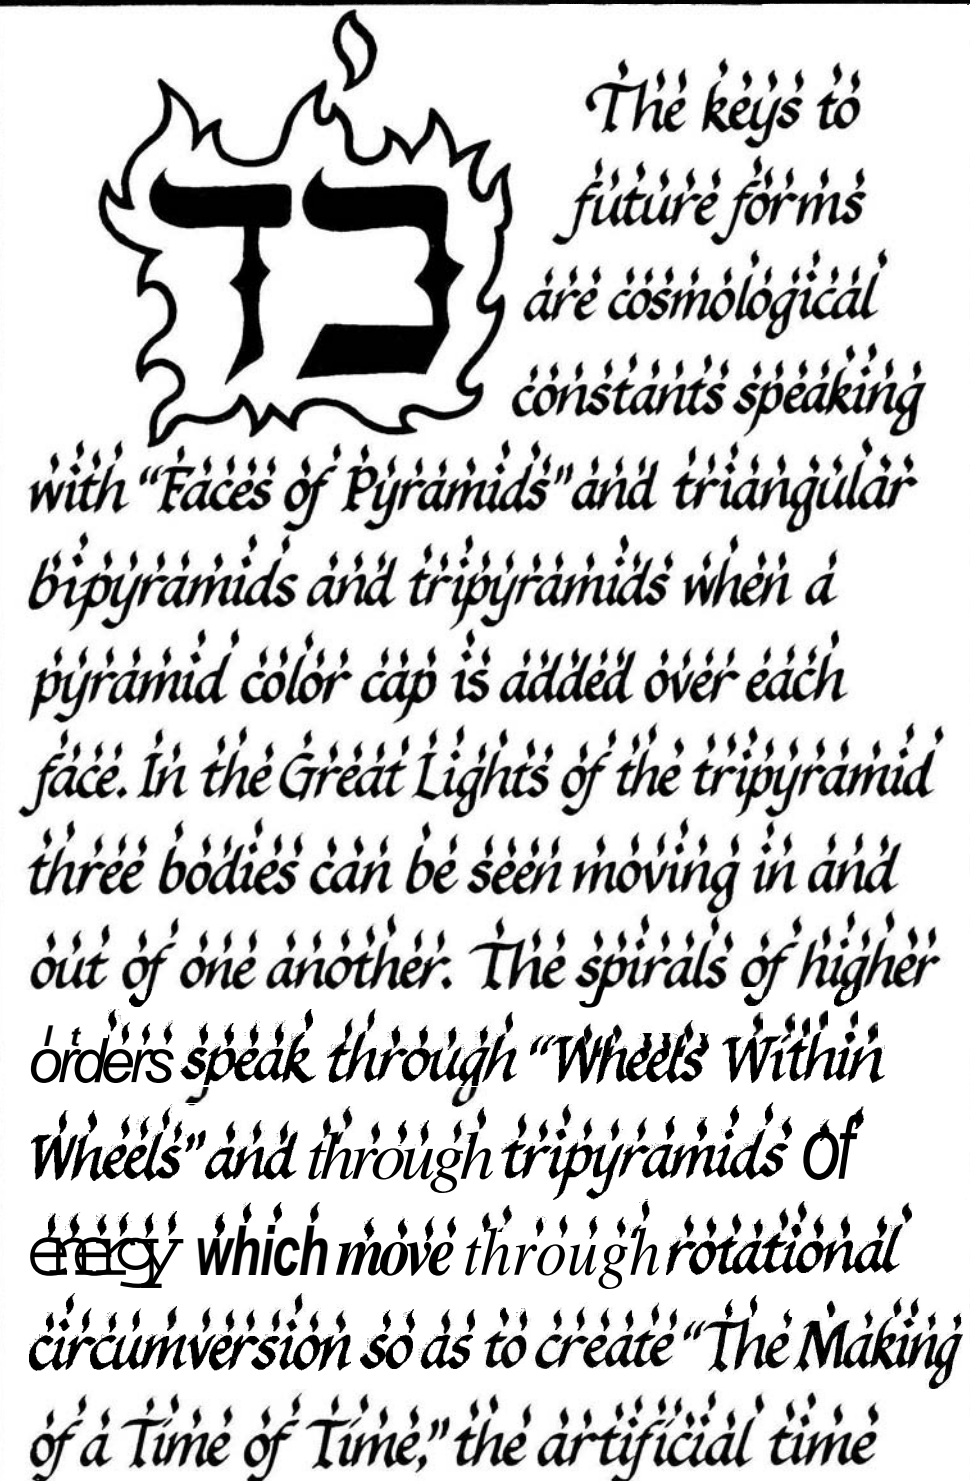 כד
The keys to
future forms
are cosmological
constants speaking
with “Faces of Pyramids” and triangular
bipyramids and tripyramids when a
pyramid color cap is added over each
face. In the Great Lights of the tripyramid
three bodies can be seen moving in and
out of one another. The spirals of higher
orders speak through “Wheels Within
Wheels” and through tripyramids of
energy which move through rotational
circumversion so as to create “The Making
of a Time of Time,” the artificial time